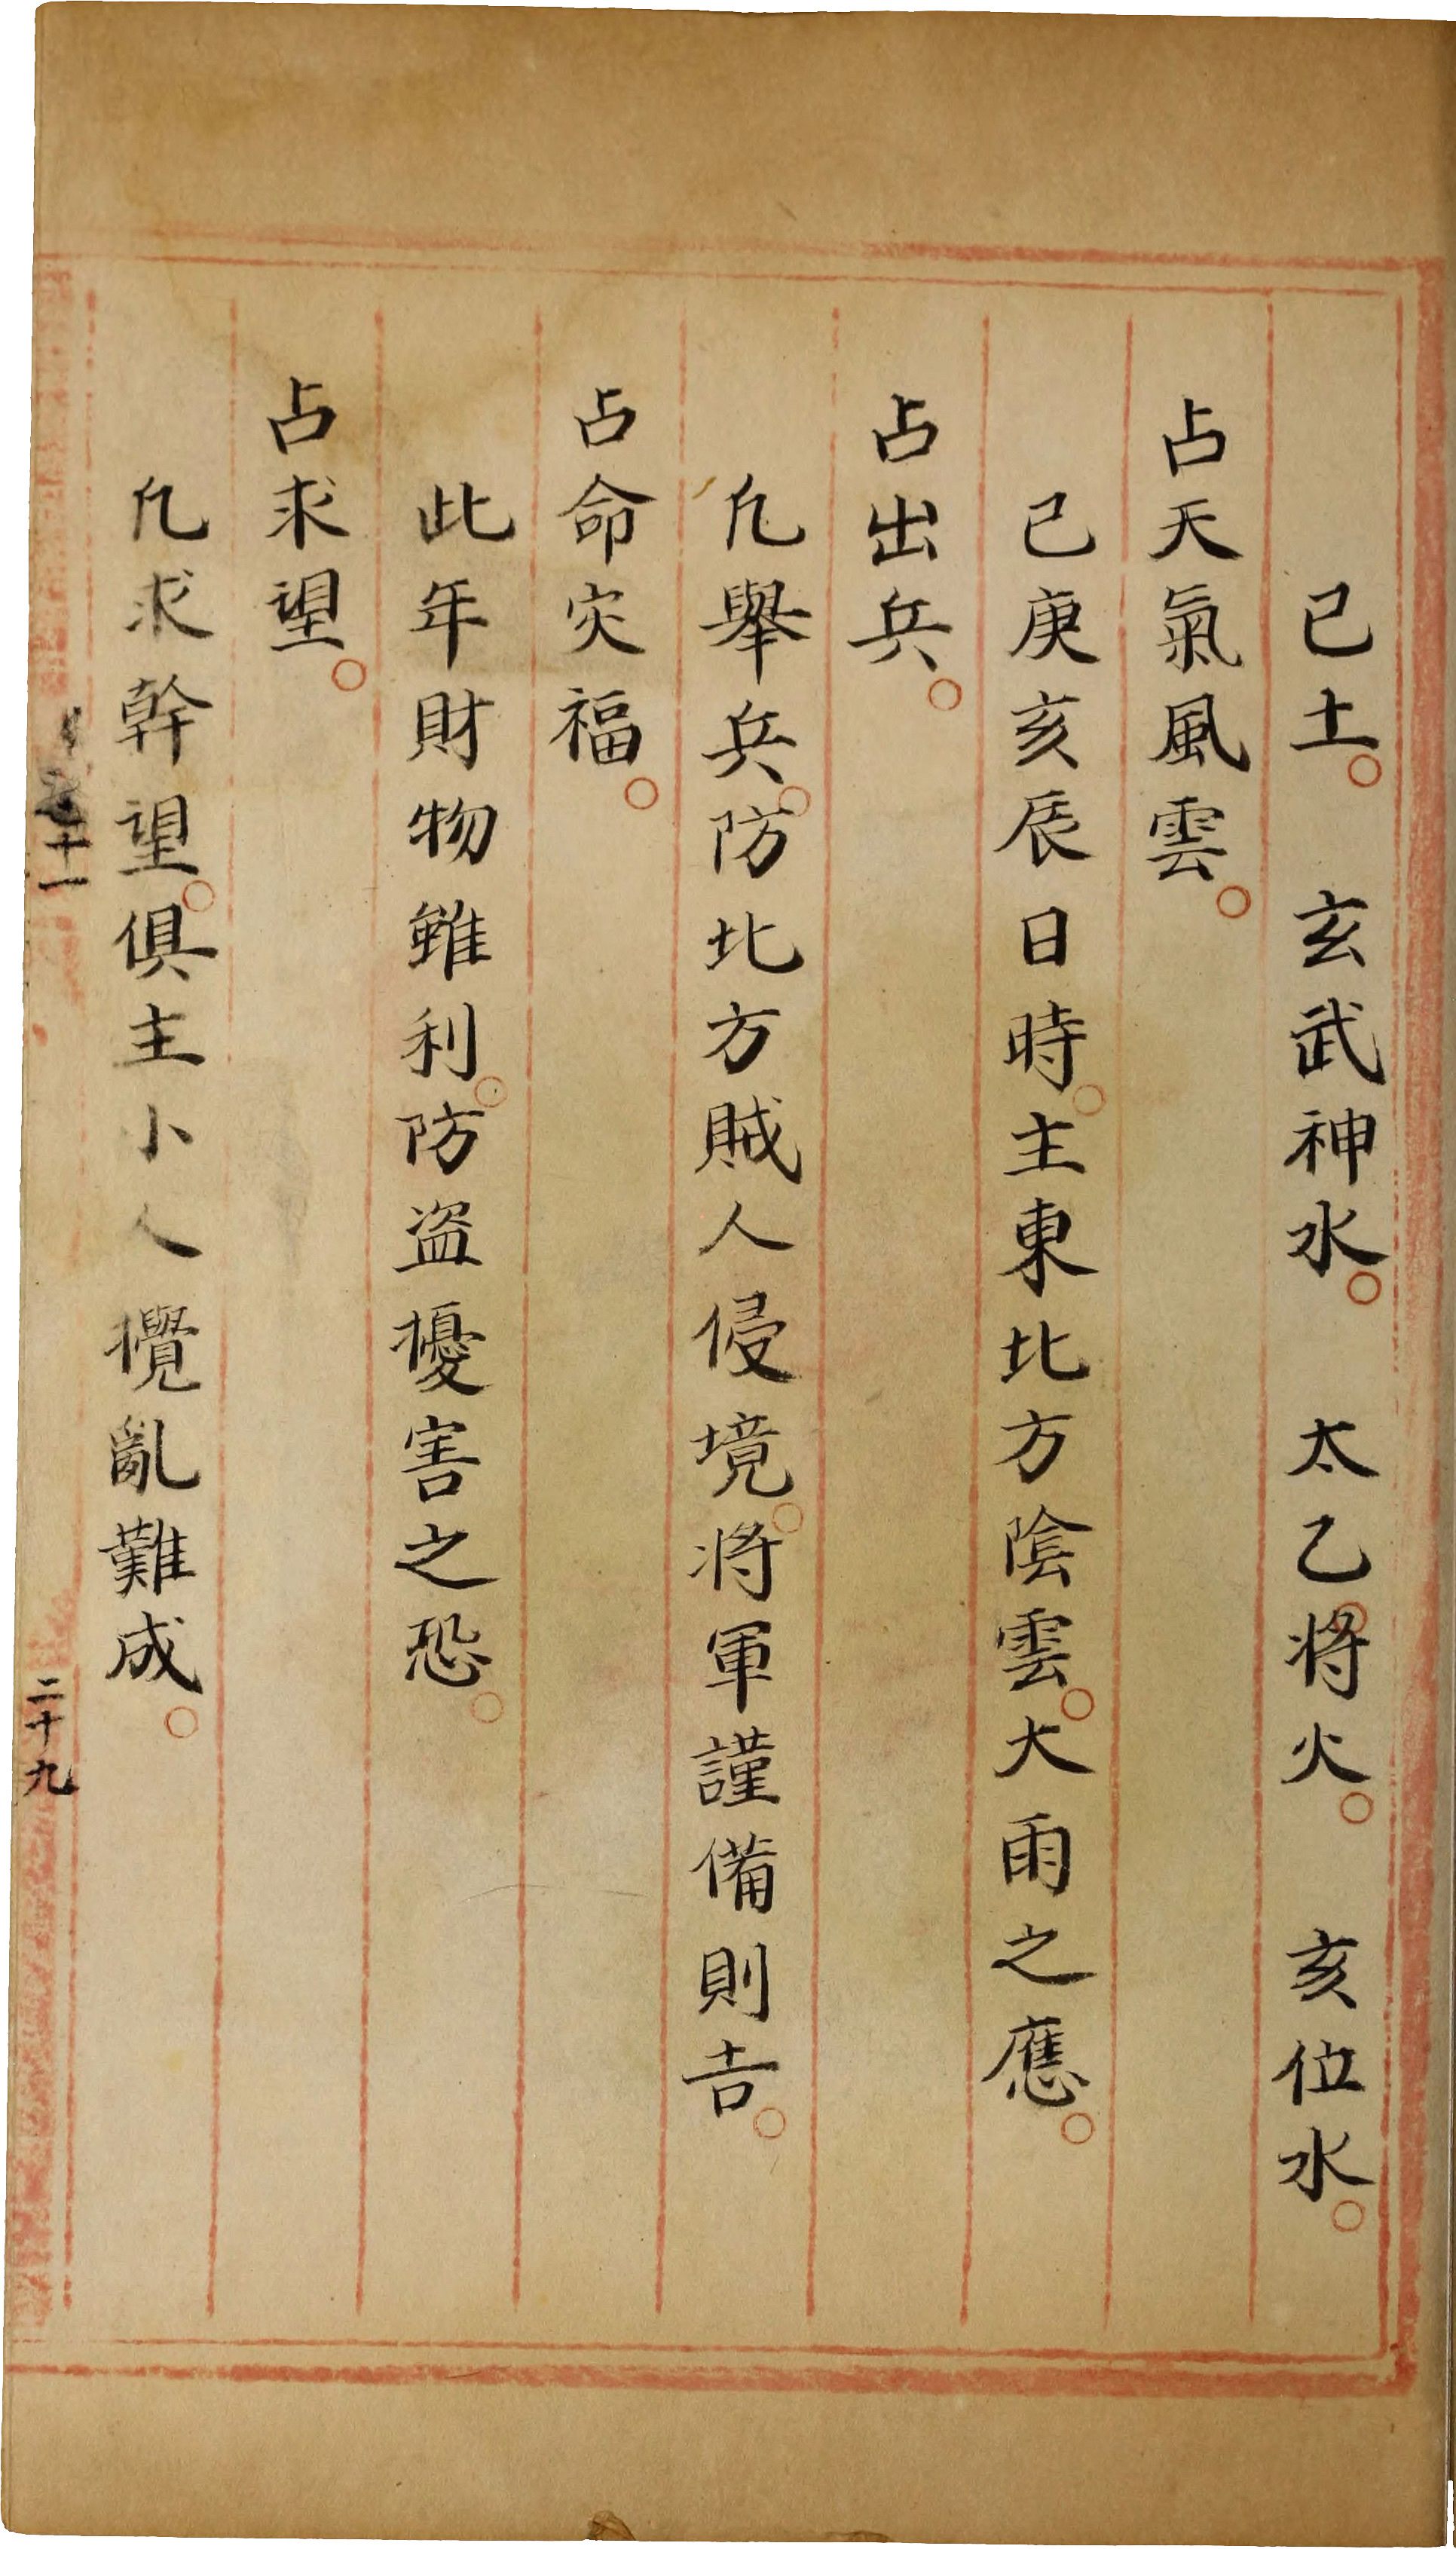 己土。　玄武神水。　太乙將火。　亥位水。
占天氣風雲。
己庚亥辰日時。主東北方陰雲。大雨之應。
占出兵。
凡舉兵。防北方賊人侵境。將軍謹備則吉。
占命灾福。
此年財物雖利。防盗擾害之恐。
占求望。
凡求幹望。俱主小人攪亂難成。
十一
二十九